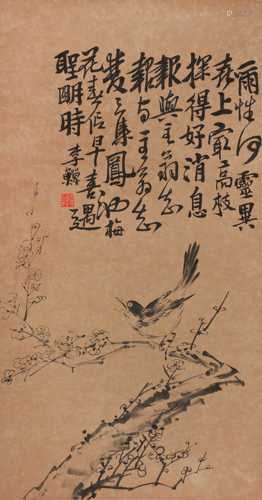 爾性何靈異
喜上最高枝
探得好消息
報與主翁知
報与主翁知
集鳳池梅
花春信早喜遇
聖明時 李鱓